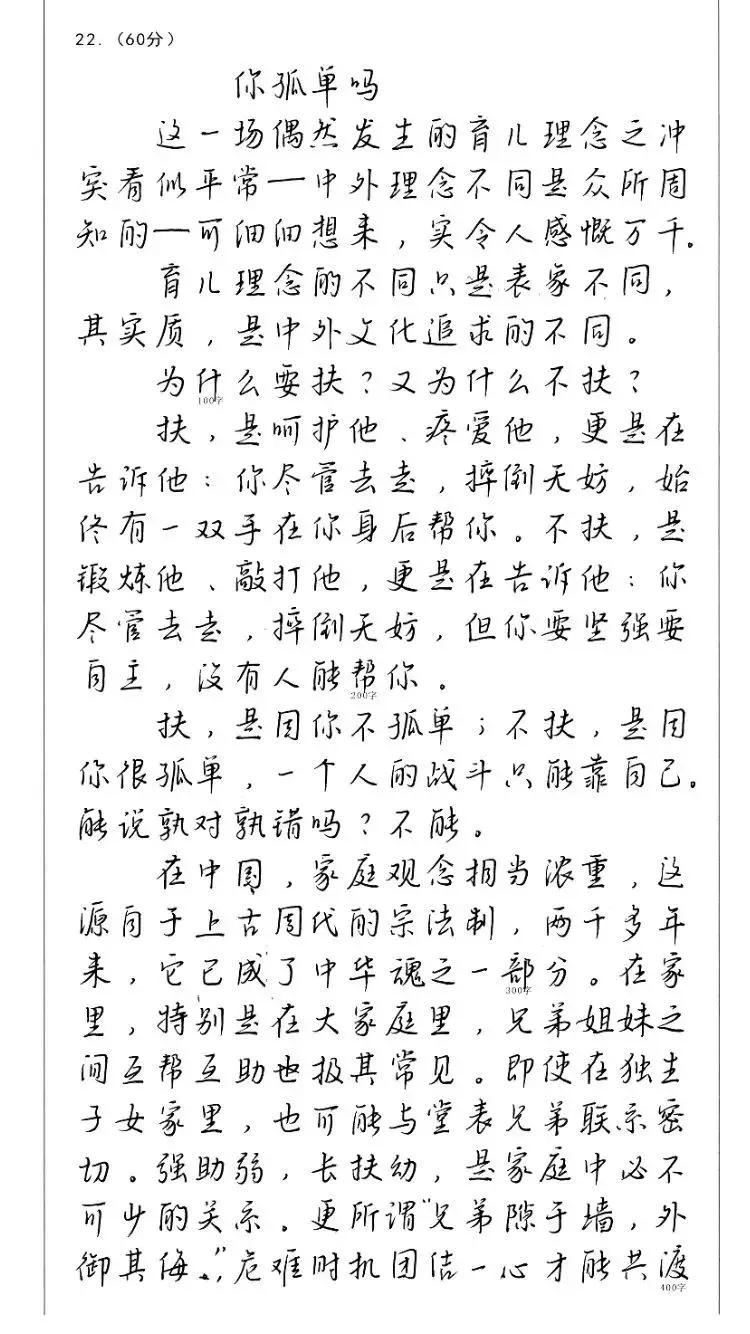 22.（60分）
你孤单吗
这一场偶然发生的育儿理念之冲
突看似平常——中外理念不同是众所周
知的——可细细想来，实令人感慨万千。
育儿理念的不同只是表象不同，
其实质，是中外文化追求的不同。
为什么要扶？又为什么不扶？
100字
扶，是呵护他、疼爱他，更是在
告诉他：你尽管去走，摔倒无妨，始
终有一双手在你身后帮你。不扶，是
锻炼他、敲打他，更是在告诉他：你
尽管去走，摔倒无妨，但你要坚强要
自主，没有人能帮你。
200字
扶，是因你不孤单；不扶，是因
你很孤单，一个人的战斗只能靠自己。
能说孰对孰错吗？不能。
在中国，家庭观念相当浓重，这
源自于上古周代的宗法制，两千多年
来，它已成了中华魂之一部分。在家
300字
里，特别是在大家庭里，兄弟姐妹之
间互帮互助也极其常见。即使在独生
子女家里，也可能与堂表兄弟联系密
切。强助弱，长扶幼，是家庭中必不
可少的关系。更所谓“兄弟隙于墙，外
御其侮。”，危难时机团结一心才能共渡
400字